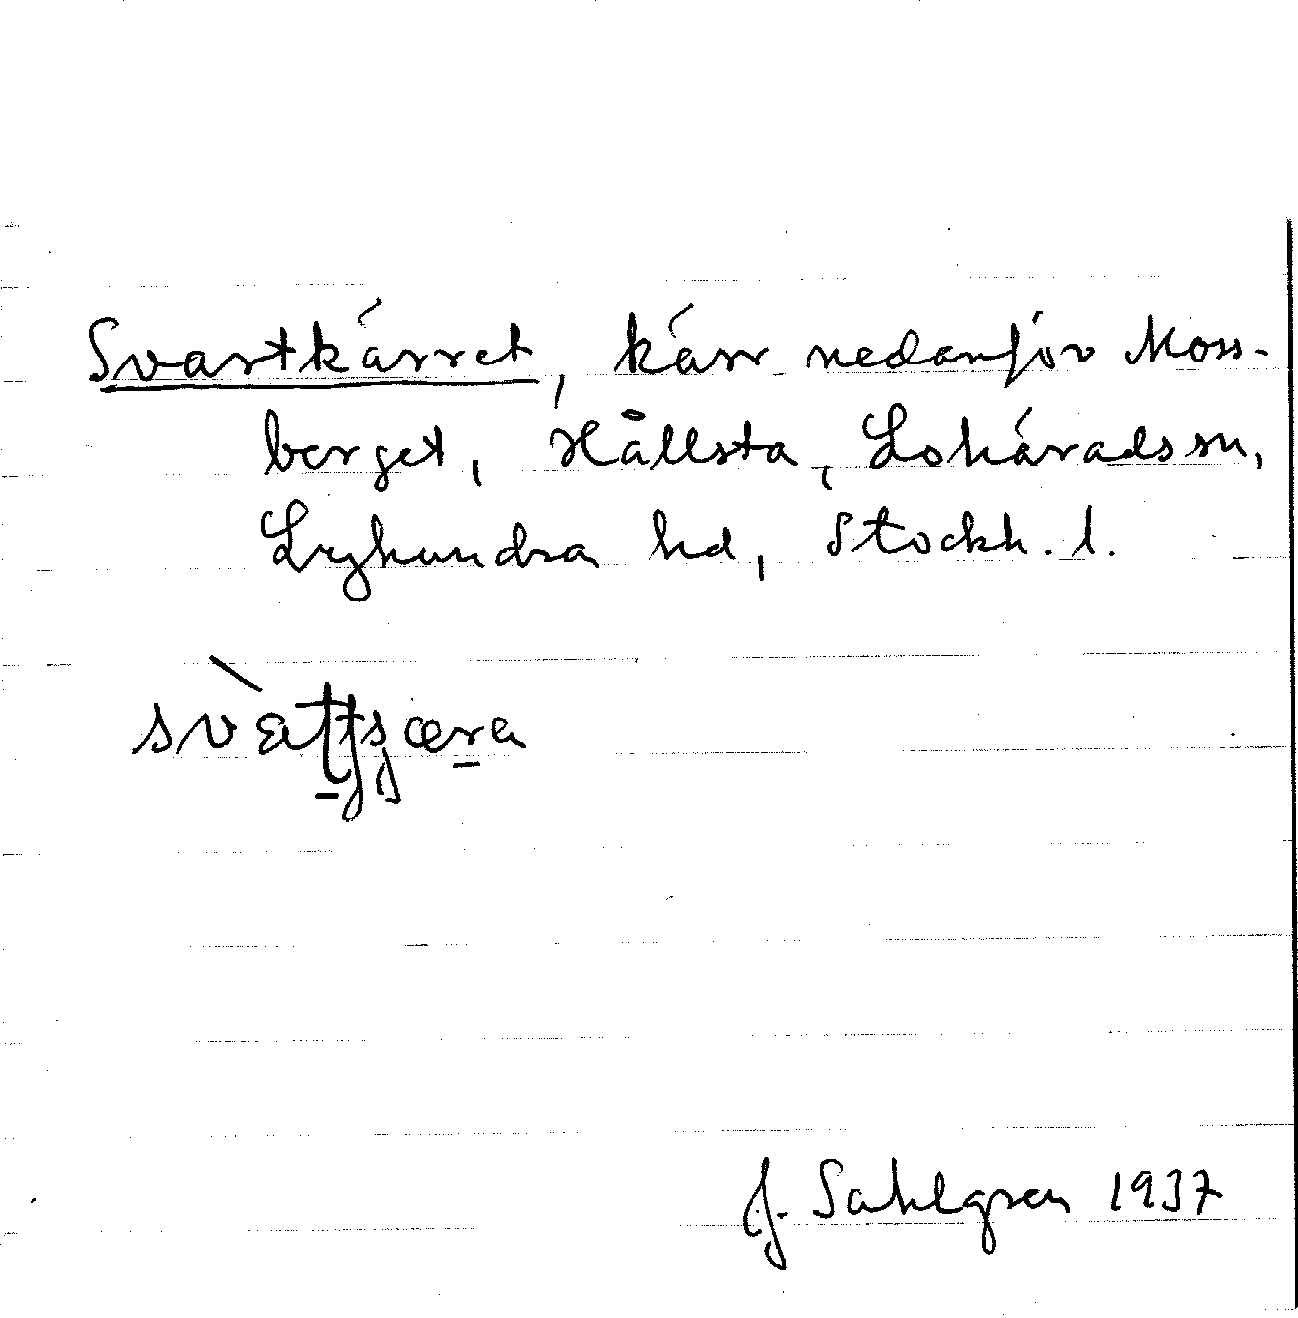 Svartkärret, kärr nedanför Moss-
berget, Hållsta, Lohäradssn,
Lyhundra hd, Stockh. l.
J. Sahlgren 1937